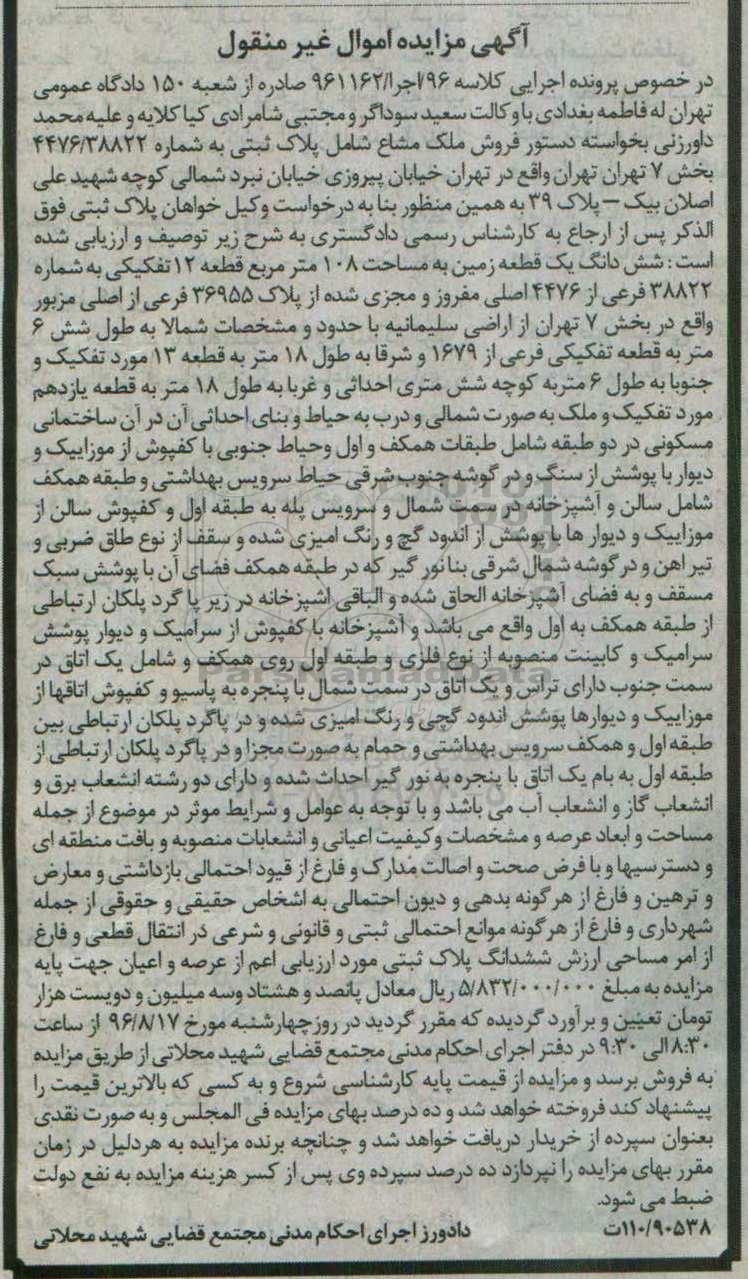 آگهی مزایده اموال غیر منقول
در خصوص پرونده اجرایی کلاسه ۹۶/اجرا/۹۶۱۱۶۲ صادره از شعبه ۱۵۰ دادگاه عمومی
تهران له فاطمه بغدادی با وکالت سعید سوداگر و مجتبی شامرادی کیا کلایه و علیه محمد
داورزنی بخواسته دستور فروش ملک مشاع شامل پلاک ثبتی به شماره ۴۴۷۶/۳۸۸۲۲
بخش ۷ تهران تهران واقع در تهران خیابان پیروزی خیابان نبرد شمالی کوچه شهید علی
اصلان بیک – پلاک ۳۹ به همین منظور بنا به درخواست وکیل خواهان پلاک ثبتی فوق
الذکر پس از ارجاع به کارشناس رسمی دادگستری به شرح زیر توصیف و ارزیابی شده
است : شش دانگ یک قطعه زمین به مساحت ۱۰۸ متر مربع قطعه ۱۲ تفکیکی به شماره
۳۸۸۲۲ فرعی از ۴۴۷۶ اصلی مفروز و مجزی شده از پلاک ۳۶۹۵۵ فرعی از اصلی مزبور
واقع در بخش ۷ تهران از اراضی سلیمانیه با حدود و مشخصات شمالا به طول شش ۶
متر به قطعه تفکیکی فرعی از ۱۶۷۹ و شرقا به طول ۱۸ متر به قطعه ۱۳ مورد تفکیک و
جنوبا به طول ۶ متربه کوچه شش متری احداثی و غربا به طول ۱۸ متر به قطعه یازدهم
مورد تفکیک و ملک به صورت شمالی و درب به حیاط و بنای احداثی آن در آن ساختمانی
مسکونی در دو طبقه شامل طبقات همکف و اول وحیاط جنوبی با کفپوش از موزاییک و
دیوار با پوشش از سنگ و در گوشه جنوب شرقی حیاط سرویس بهداشتی و طبقه همکف
شامل سالن و آشپزخانه در سمت شمال و سرویس پله به طبقه اول و کفپوش سالن از
موزاییک و دیوار ها با پوشش از اندود گچ و رنگ امیزی شده و سقف از نوع طاق ضربی و
تیر اهن و در گوشه شمال شرقی بنا نور گیر که در طبقه همکف فضای آن با پوشش سبک
مسقف و به فضای آشپزخانه الحاق شده و الباقی اشپزخانه در زیر پا گرد پلکان ارتباطی
از طبقه همکف به اول واقع می باشد و آشپزخانه با کفپوش از سرامیک و دیوار پوشش
سرامیک و کابینت منصوبه از نوع فلزی و طبقه اول روی همکف و شامل یک اتاق در
سمت جنوب دارای تراس و یک اتاق در سمت شمال با پنجره به پاسیو و کفپوش اتاقها از
موزاییک و دیوارها پوشش اندود گچی و رنگ امیزی شده و در پاگرد پلکان ارتباطی بین
طبقه اول و همکف سرویس بهداشتی و حمام به صورت مجزا و در پاگرد پلکان ارتباطی از
طبقه اول به بام یک اتاق با پنجره به نور گیر احداث شده و دارای دو رشته انشعاب برق و
انشعاب گاز و انشعاب آب می باشد و با توجه به عوامل و شرایط موثر در موضوع از جمله
مساحت و ابعاد عرصه و مشخصات وکیفیت اعیانی و انشعابات منصوبه و بافت منطقه ای
و دسترسیها و با فرض صحت و اصالت مدارک و فارغ از قیود احتمالی بازداشتی و معارض
و ترهین و فارغ از هرگونه بدهی و دیون احتمالی به اشخاص حقیقی و حقوقی از جمله
شهرداری و فارغ از هرگونه موانع احتمالی ثبتی و قانونی و شرعی در انتقال قطعی و فارغ
از امر مساحی ارزش ششدانگ پلاک ثبتی مورد ارزیابی اعم از عرصه و اعیان جهت پایه
مزایده به مبلغ ۵/۸۳۲/۰۰۰/۰۰۰ ریال معادل پانصد و هشتاد وسه میلیون و دویست هزار
تومان تعیین و برآورد گردیده که مقرر گردید در روزچهارشنبه مورخ ۹۶/۸/۱۷ از ساعت
۸:۳۰ الی ۹:۳۰ در دفتر اجرای احکام مدنی مجتمع قضایی شهید محلاتی از طریق مزایده
به فروش برسد و مزایده از قیمت پایه کارشناسی شروع و به کسی که بالاترین قیمت را
پیشنهاد کند فروخته خواهد شد و ده درصد بهای مزایده فی المجلس و به صورت نقدی
بعنوان سپرده از خریدار دریافت خواهد شد و چنانچه برنده مزایده به هردلیل در زمان
مقرر بهای مزایده را نپردازد ده درصد سپرده وی پس از کسر هزینه مزایده به نفع دولت
ضبط می شود.
۱۱۰/۹۰۵۳۸ت دادورز اجرای احکام مدنی مجتمع قضایی شهید محلاتی
ParsNamadData